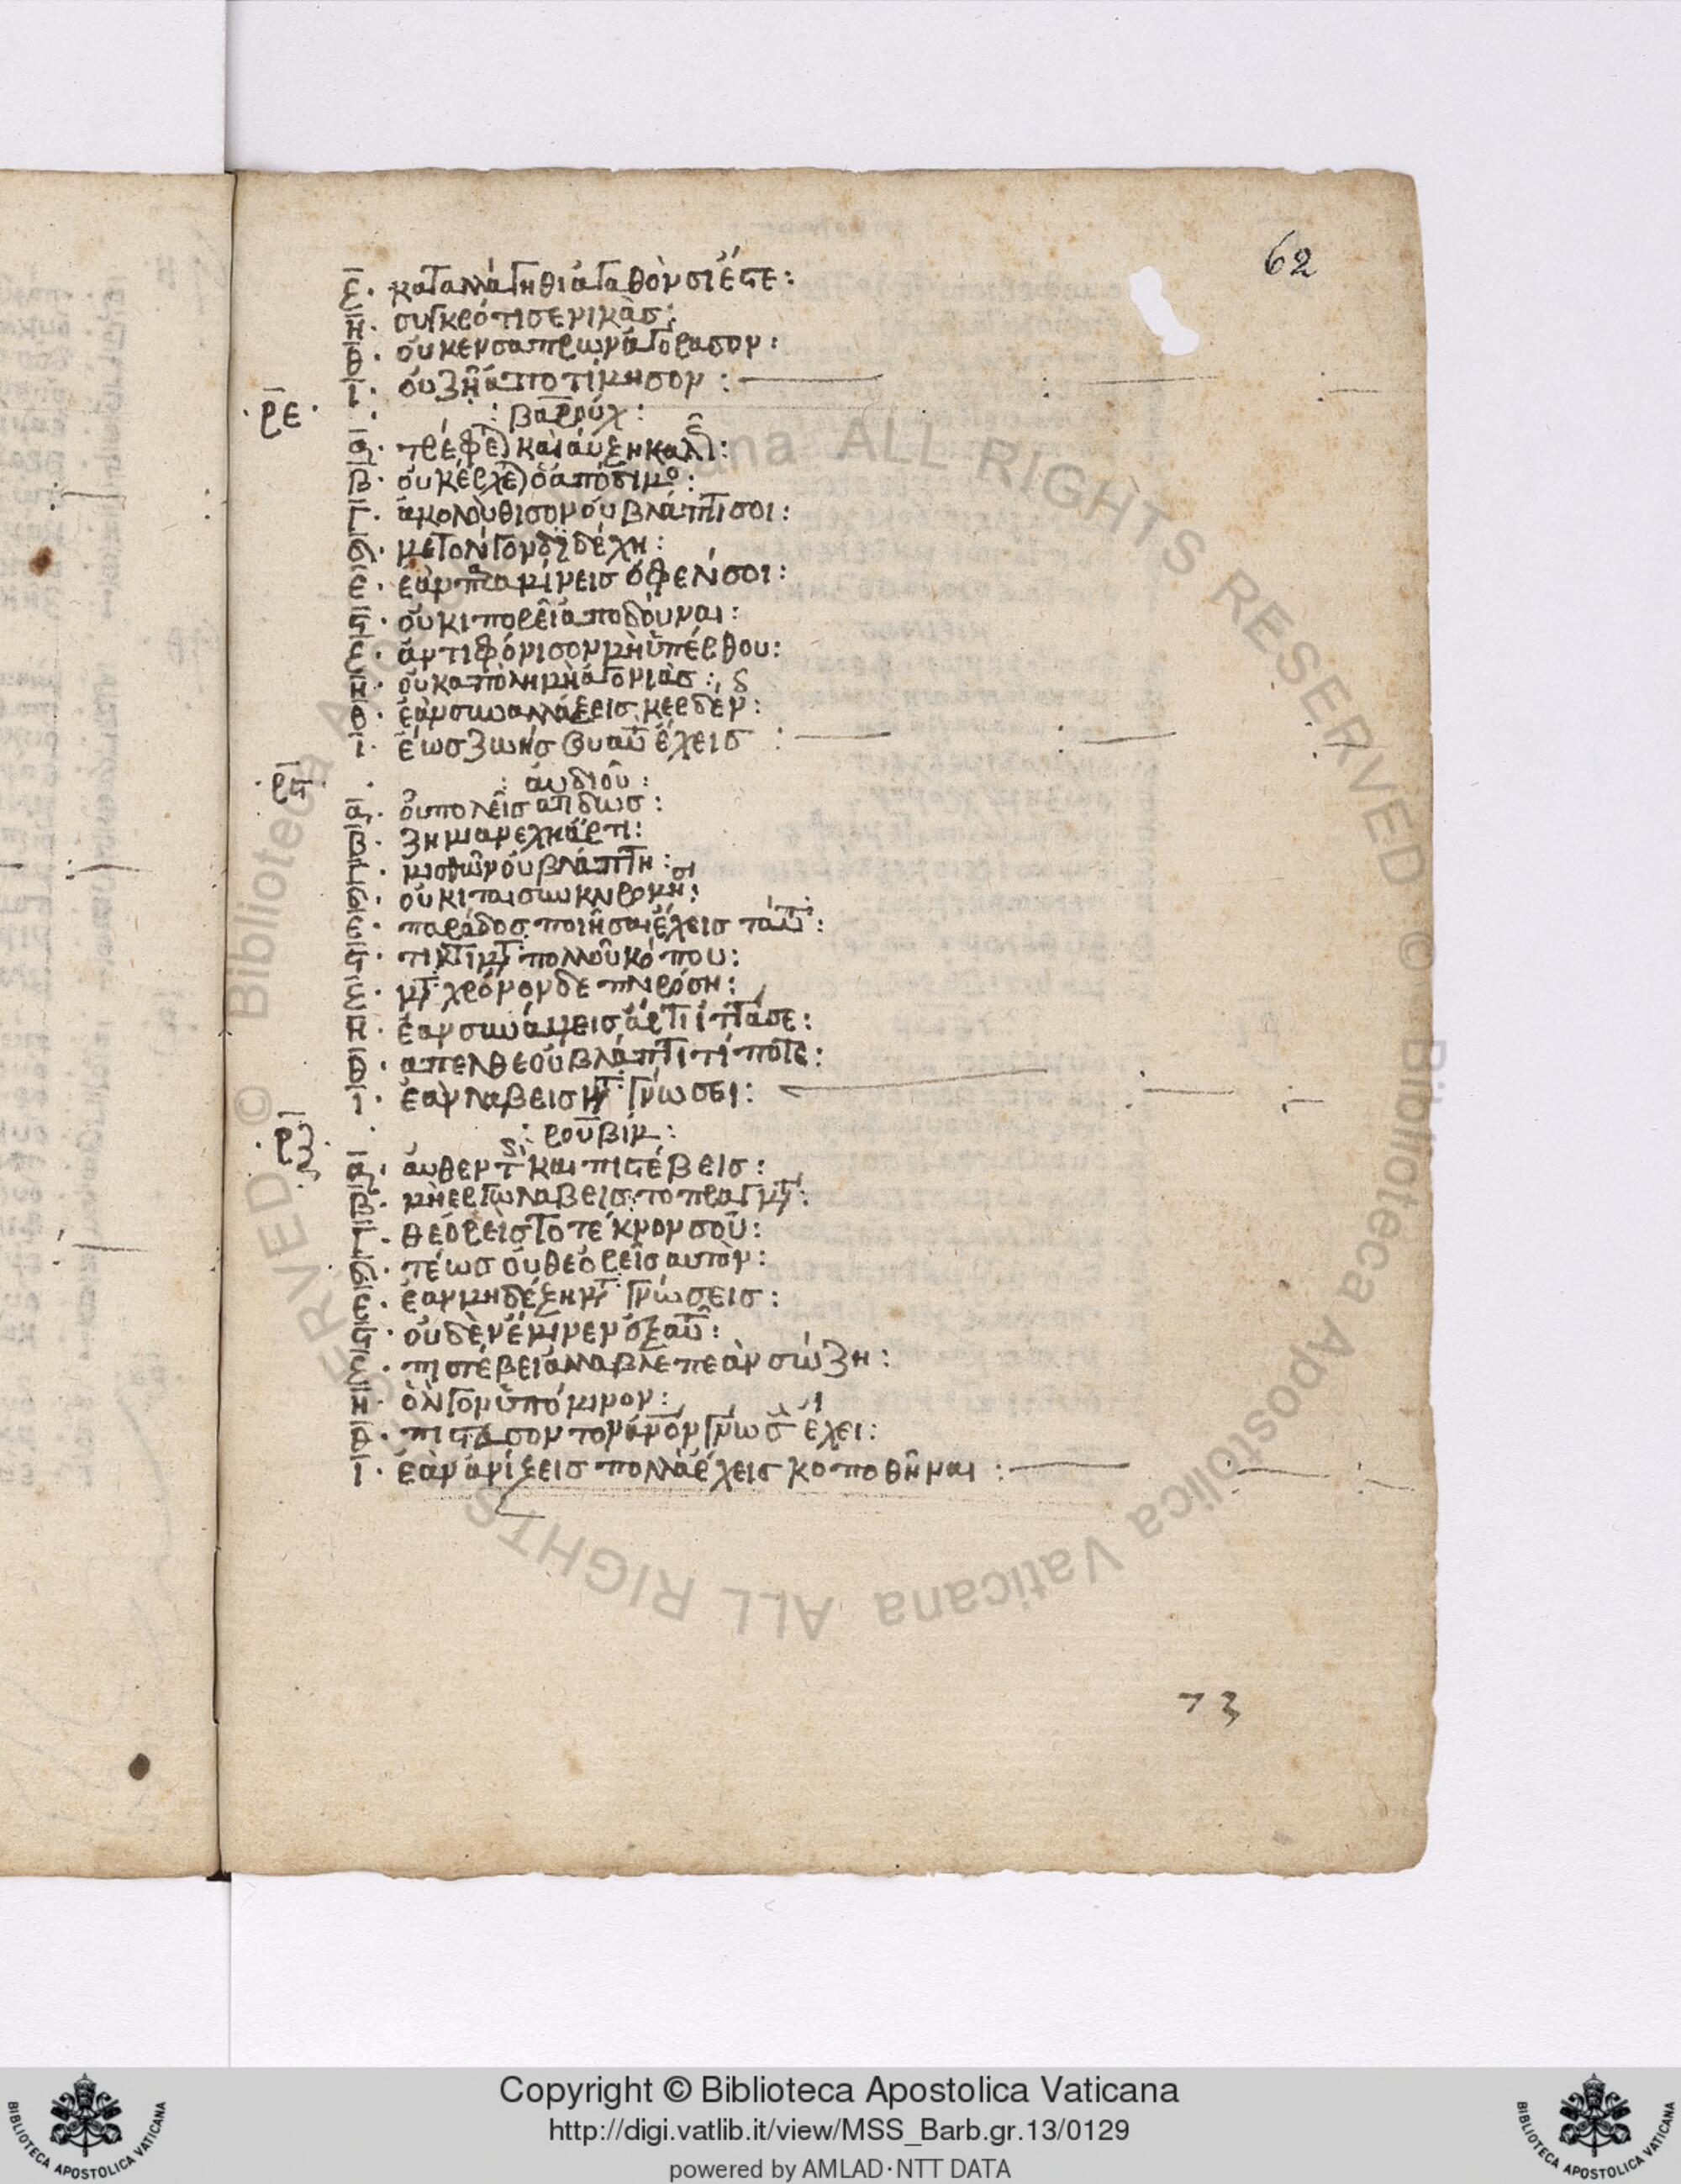 62
ζ· καταλλάγηθι ἀγαθὸν σι ἔστε:
η· συγκρότισε νικὰσ:
θ· οὐκ ἐν σαπρων ἀγόρασον:
ι· οὐ ζῆ ἀποτίμησον:
·ρε· : βαρούχ:
α· τρέφε) και ἀύξη καλ:
β· οὐκ ἐρχε) ὁ ἀπόδιμο:
γ· ἀκολούθισον οὐ βλάπτι σοι:
δ· μετ ολίγον δὲ δέχη:
ε· εὰν παραμίνεισ ὀφελήσοι:
ς· οὐκ ιπορεῖ ἀποδόυναι:
ζ· ἀντιφόνισον μὴ ὑπέρθου:
η· οὐκ απόλη μὴ ἀγονιὰσ:
θ· ἐὰν συναλλάξεισ κερδέν:
ι· ἐώσ ζωῆσ αυτ ἔχεισ :
·ρς· : ἀωδιοῦ:
α· ὀυ πολεῖσ απ δωσ:
β· ζημιαν εχη ἄρτι:
γ· μισθῶν οὐ βλάπτη:
δ· οὐκ ιπαισιω κλρονμη:
ε· παράδοσ ποιῆσαι ἔχεισ
ς· τικτι μτ πολλοῦ κόπου:
ζ· μτ χρόνον δε πλρόση:
η· ἐαν συνάψεισ ἄρτι ἱττάσε:
θ· απελθε οὐ βλάπτι τί ποτε:
ι· ἐαν λαβεισ μτ γνώσει:
·ρζ· : ρουβίμ:
α· ἀυθεντ και πιστέβεισ:
β· μὴ εργω λαβεισ το πραγμτ:
γ· θεόρεισ το τέκνον σοῦ:
δ· τέωσ οὐ θεόρεῖσ αυτὸν:
ε· ἐαν μη δέξη μτ γνώσεισ:
ς· οὐδὲν ἔμινεν ἐξ αυτ:
ζ· πιστέβει ἀλλα βλέπε ὰν σώζη:
η· ὀλίγον ὑπόμινον:
θ· πιστασον τον ἀνον γνωσ έχει:
ι· ἐὰν ἀνίξεισ πολλὰ ἔχεισ κοποθῆναι :
73
Copyright © Biblioteca Apostolica Vaticana
http://digi.vatlib.it/view/MSS_Barb.gr.13/0129
powered by AMLAD·NTT DATA
BIBLIOTECA APOSTOLICA VATICANA
BIBLIOTECA APOSTOLICA VATICANA
© Biblioteca Apostolica Vaticana ALL RIGHTS RESERVED © Biblioteca Apostolica Vaticana ALL RIGHTS RESERVED